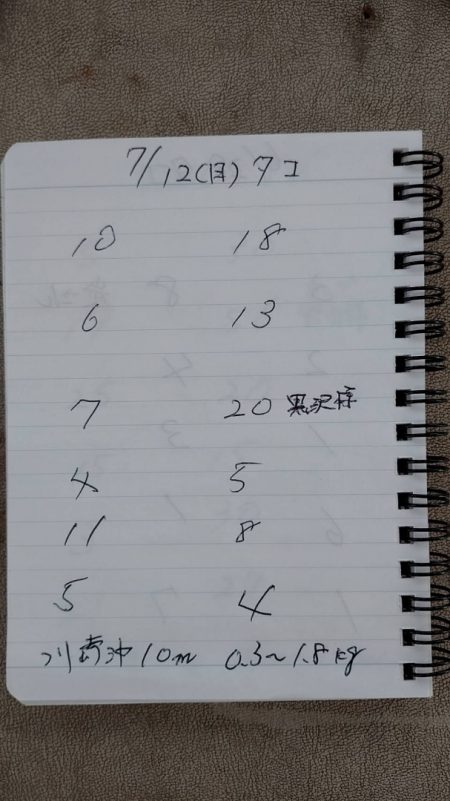 7/12(日) タコ
10 18
6 13
7 20 黒沢様
4 5
11 8
5 4
川崎沖10m 0.3~1.8kg